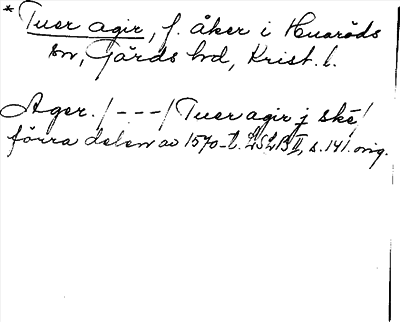 * Tuer agir, f. åker i Huaröds
sn, Gärds hd, Krist. l.
Ager. / - - - / Tuer agir j ske /
förra delen av 1570-t. LSLB II, s. 141. orig.